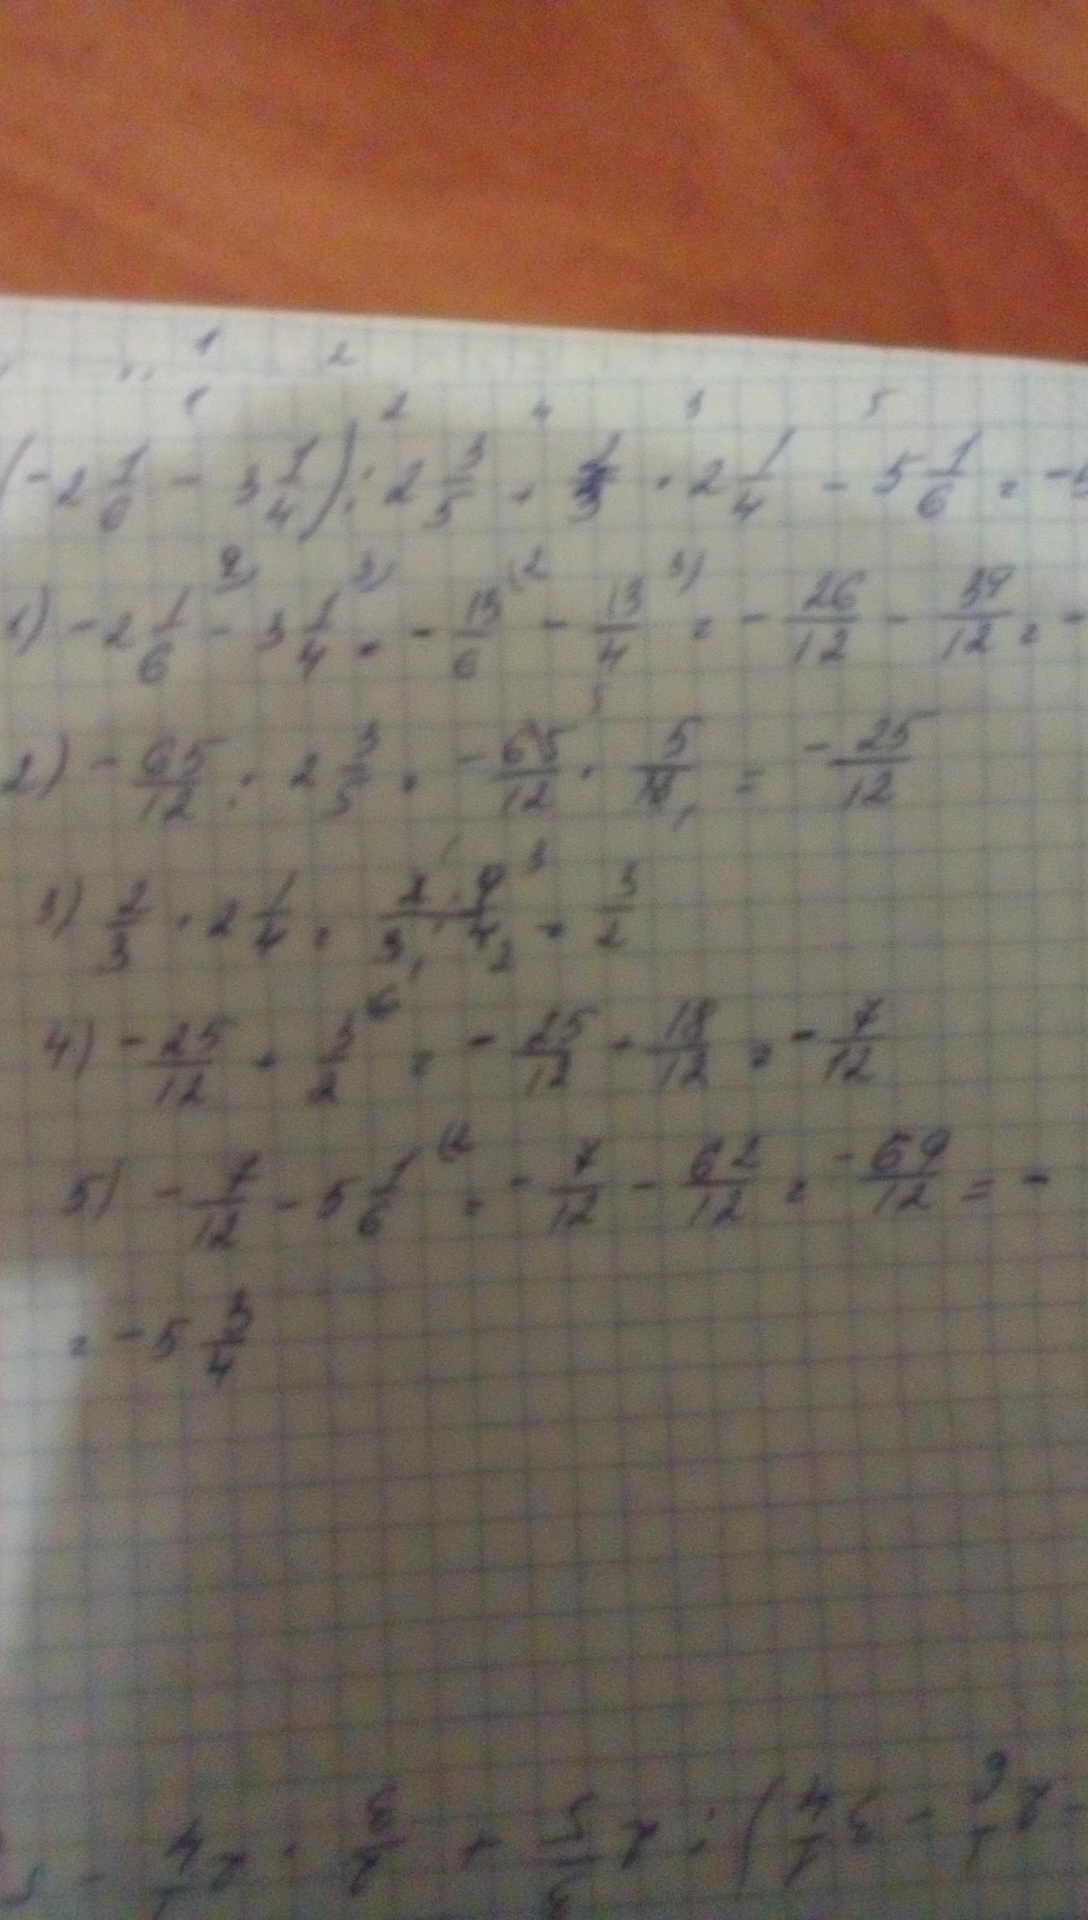 1 2
1 2 4 3 5
(-2 1/6 - 3 1/4) : 2 3/5 + 2/3 · 2 1/4 - 5 1/6 = -5
1) -2 1/6 - 3 1/4 = -13/6 (2 - 13/4 3) = -26/12 - 39/12 = -
2) -65/12 : 2 3/5 = -65/12 · 5/13 = -25/12
3) 2/3 · 2 1/4 = 2 · 9/3 · 4 = 3/2
4) -25/12 + 3/2 6 = -25/12 + 18/12 = -7/12
5) -7/12 - 5 1/6 (2 = -7/12 - 62/12 = -69/12 = -
= -5 3/4